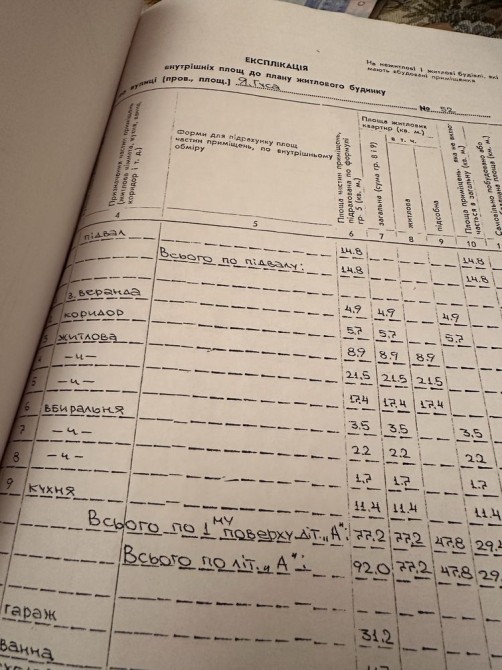 ЕКСПЛІКАЦІЯ
внутрішніх площ до плану житлового будинку
На нежитлові і житлові будівлі, які
мають вбудовані приміщення
вулиці (пров., площ.) Я.Гуса № 52
Призначення частин приміщень (житлова кімната, кухня, ванна, коридор і т. д.)
Форми для підрахунку площ частин приміщень, по внутрішньому обміру
Площа частин приміщень, підрахована по формулі гр. 5 (кв. м.)
Площа житлових квартир (кв. м.)
в т. ч.
загальна (сума гр. 8 і 9)
житлова
підсобна
Площа приміщень, яка не включається в загальну (кв. м.)
Самовільно побудована або площа (кв. м.)
4 5 6 7 8 9 10
підвал 14.8 14.8
Всього по підвалу: 14.8 14.8
з. веранда
коридор 4.9 4.9 4.9
3 житлова 5.7 5.7 5.7
4 —„— 8.9 8.9 8.9
5 —„— 21.5 21.5 21.5
6 вбиральня 17.4 17.4 17.4
7 —„— 3.5 3.5 3.5
8 —„— 2.2 2.2 2.2
9 кухня 1.7 1.7 1.7
11.4 11.4 11.4
Всього по 1му поверху літ. „А": 77.2 77.2 47.8 29.4
Всього по літ. „А": 92.0 77.2 47.8 29.
гараж
31.2
ванна